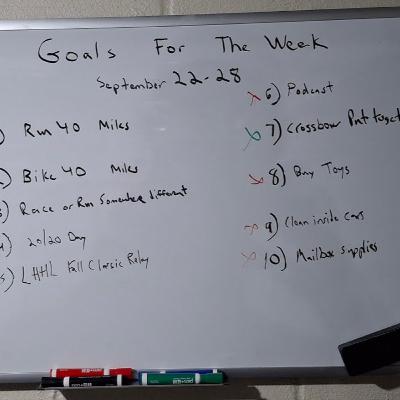 Goals For The Week
September 22-28
) Run 40 Miles
) Bike 40 Miles
3) Race or Run Somewhere different
4) 20/20 Day
5) LHHL Fall Classic Relay
x 6) Podcast
x 7) Crossbow Put toget
x 8) Buy Toys
x 9) Clean inside cars
x 10) Mailbox supplies